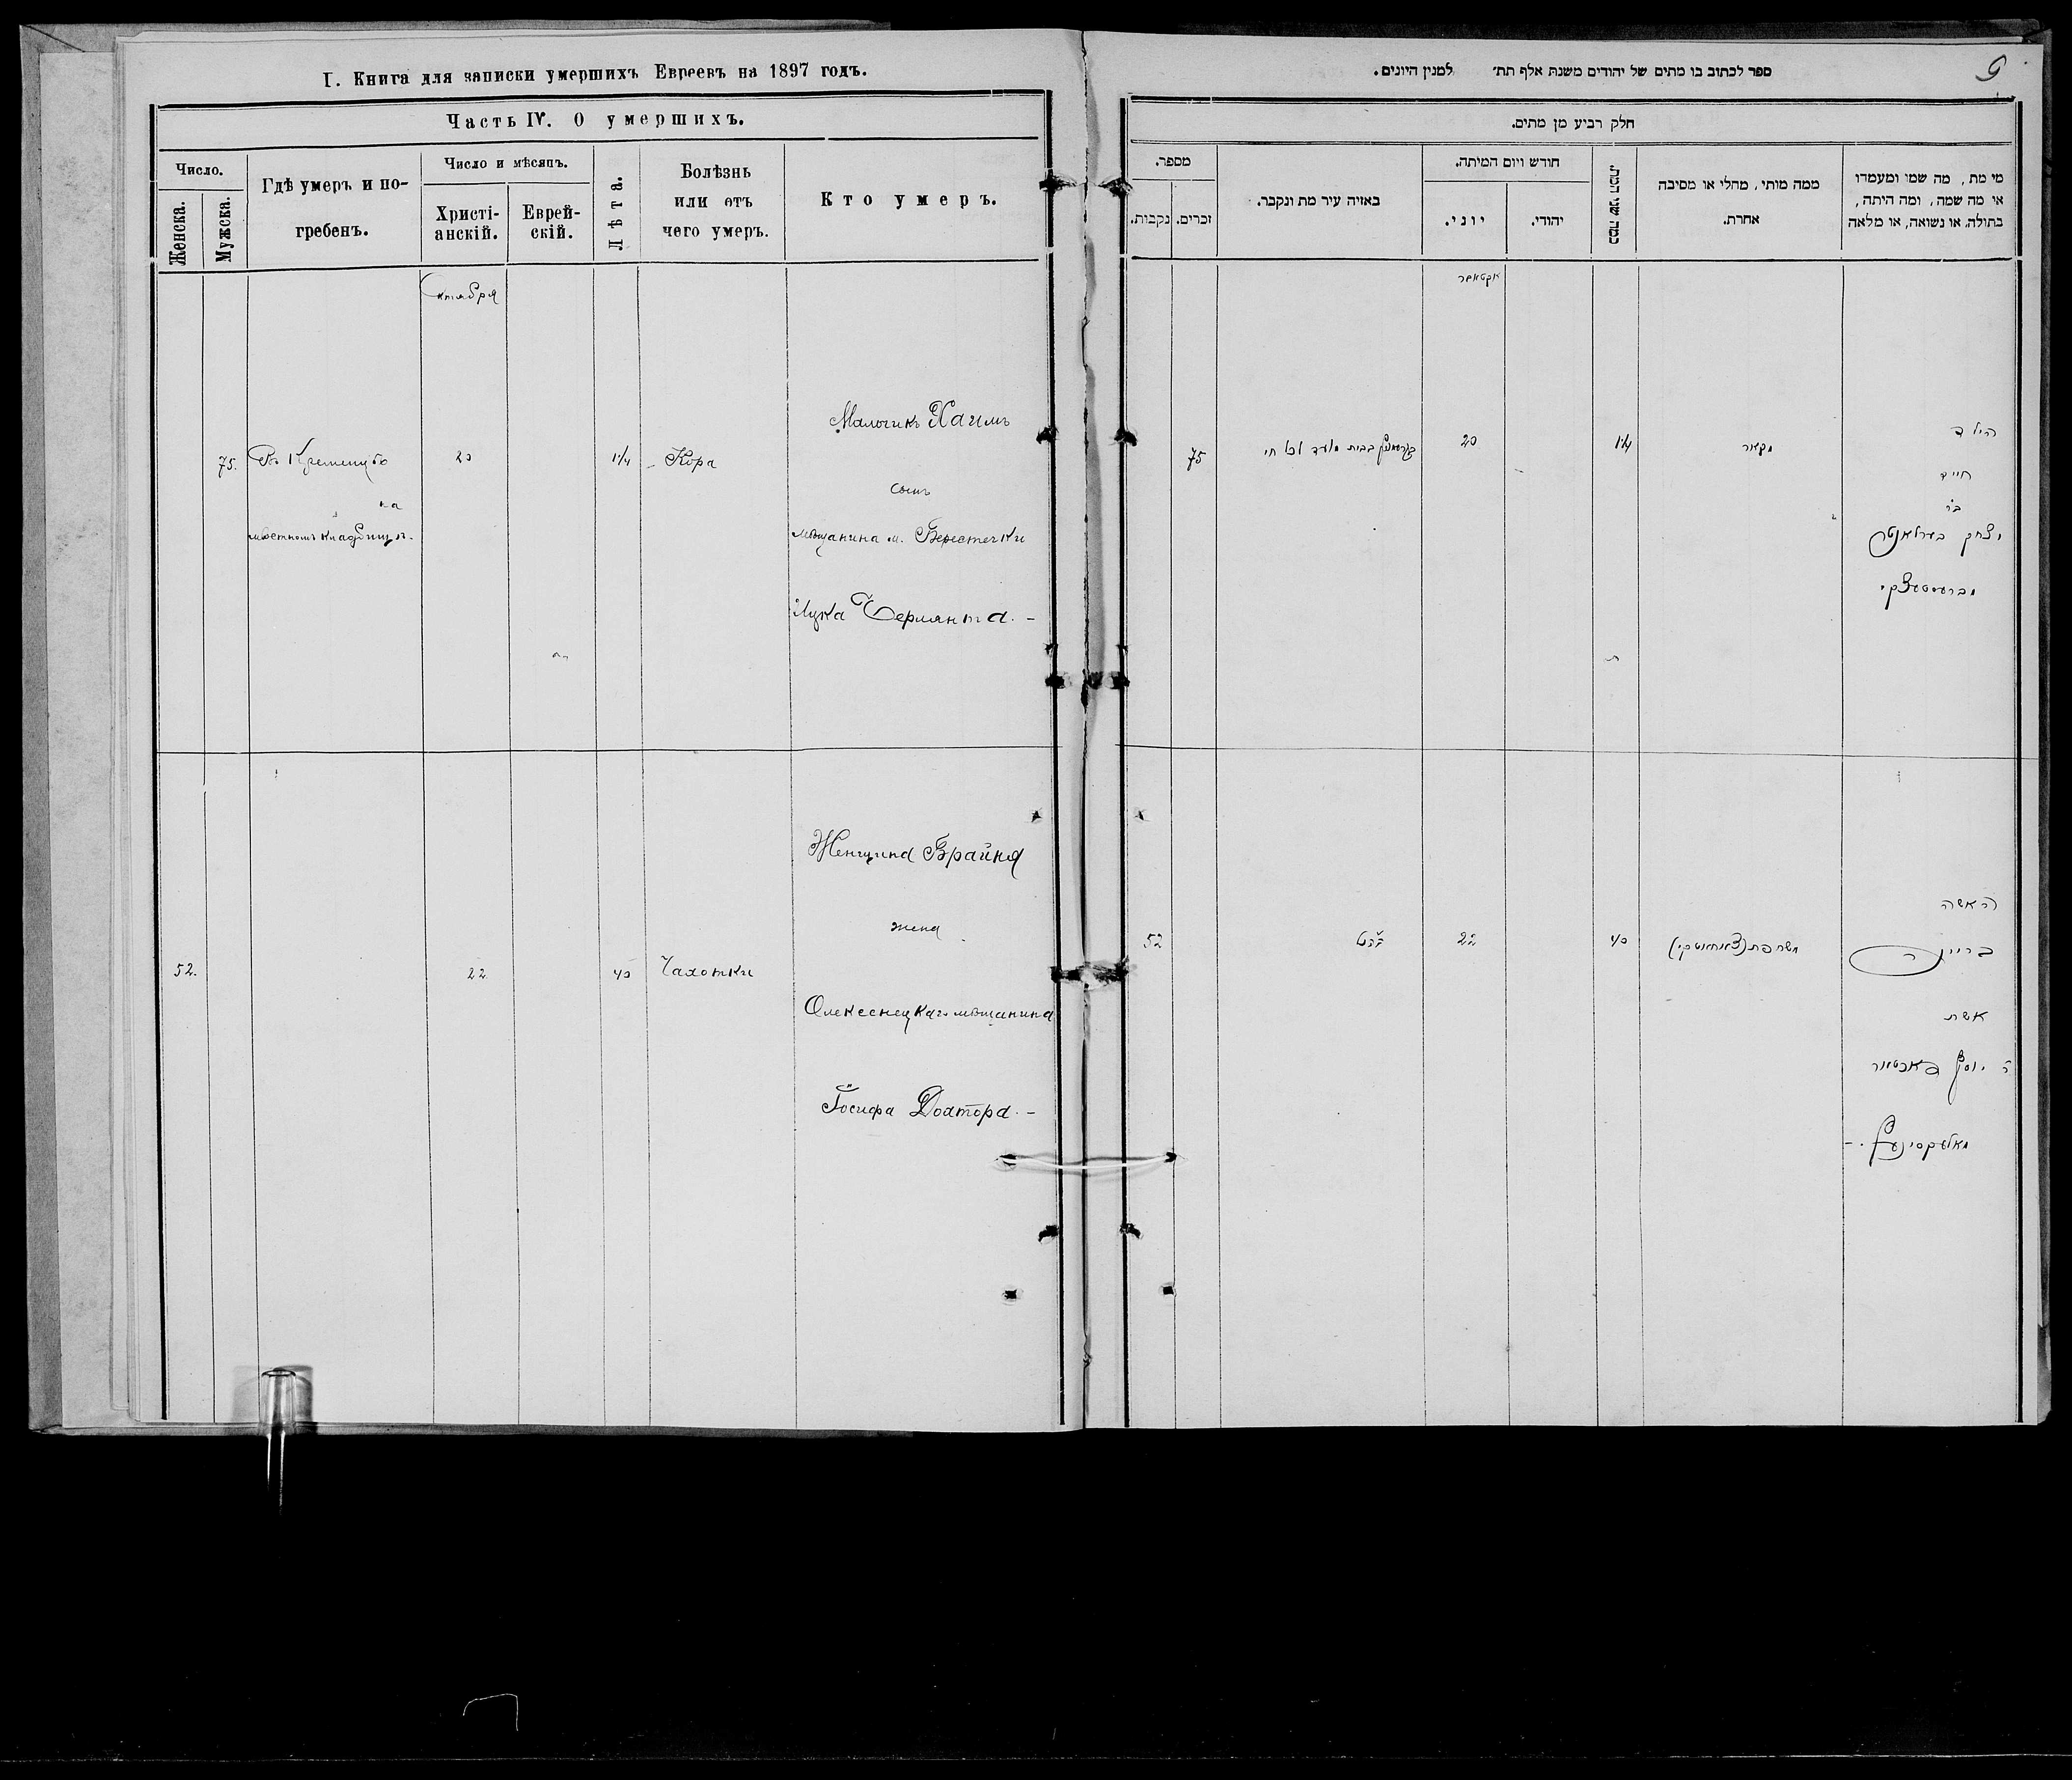 I. Книга для записки умершихъ Евреевъ на 1897 годъ.
Часть IV. О умершихъ.
Число.
Женска.
Мужска.
Гдѣ умеръ и по-
гребенъ.
Число и мѣсяцъ.
Христі-
анскій.
Еврей-
скій.
Лѣта.
Болѣзнь
или отъ
чего умеръ.
Кто умеръ.
Октября
75.
Въ Кременцѣ
на
мѣстномъ кладбищѣ.
20
1 1/4
Кора
Мальчикъ Хаимъ
сынъ
мѣщанина м. Берестечки
Ицка Берлянта. -
52.
22
40
Чахотки
Женщина Брайна
жена
Олексенецкаго мѣщанина
Іосифа Доктора. -
9
ספר לכתוב בו מתים של יהודים משנת אלף תת׳ למנין היונים.
חלק רביע מן מתים.
מספר.
נקבות.
זכרים.
באזיה עיר מת ונקבר.
חודש ויום המיתה.
יוני.
יהודי.
כמה שני המת.
ממה מותי, מחלי או מסיבה
אחרת.
מי מת, מה שמו ומעמדו
או מה שמה, ומה היתה,
בתולה, או נשואה, או מלאה
אקטאבר
75
בבית מועד לכל חי
20
1 1/4
הילד
חיים
בר
יצחק בערלאנט
52
22
40
האשה
בריינה
אשת
ר יוסף דאקטאר